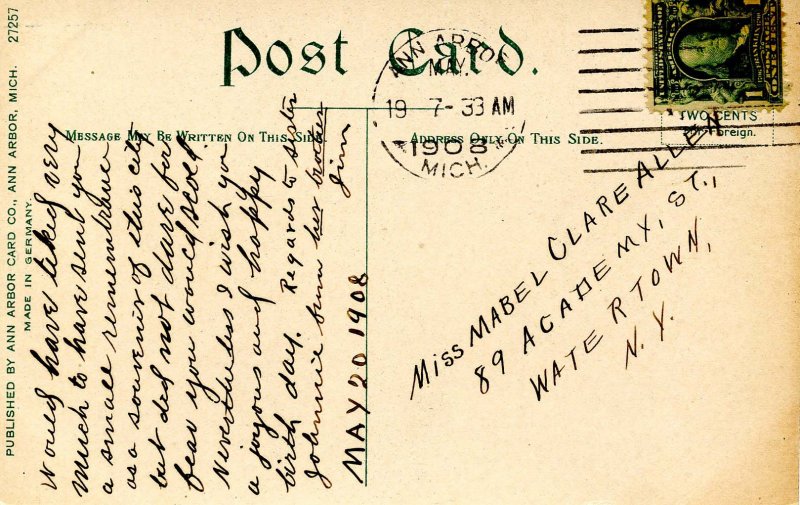 Post Card.
MESSAGE MAY BE WRITTEN ON THIS SIDE.
ADDRESS ONLY ON THIS SIDE.
PUBLISHED BY ANN ARBOR CARD CO., ANN ARBOR, MICH. 27257
MADE IN GERMANY.
ANN ARBOR
MAY
19 7-33 AM
1908
MICH.
TWO CENTS
Foreign.
1
Would have liked very
much to have sent you
a small remembrance
as a souvenir of this city
but did not dare for
fear you would scold.
Nevertheless I wish you
a joyous and happy
birth day. Regards to sister
Johnnie from her brother
Jim
MAY 20 1908
MISS MABEL CLARE ALLEN
89 ACADEMY, ST.,
WATERTOWN,
N.Y.